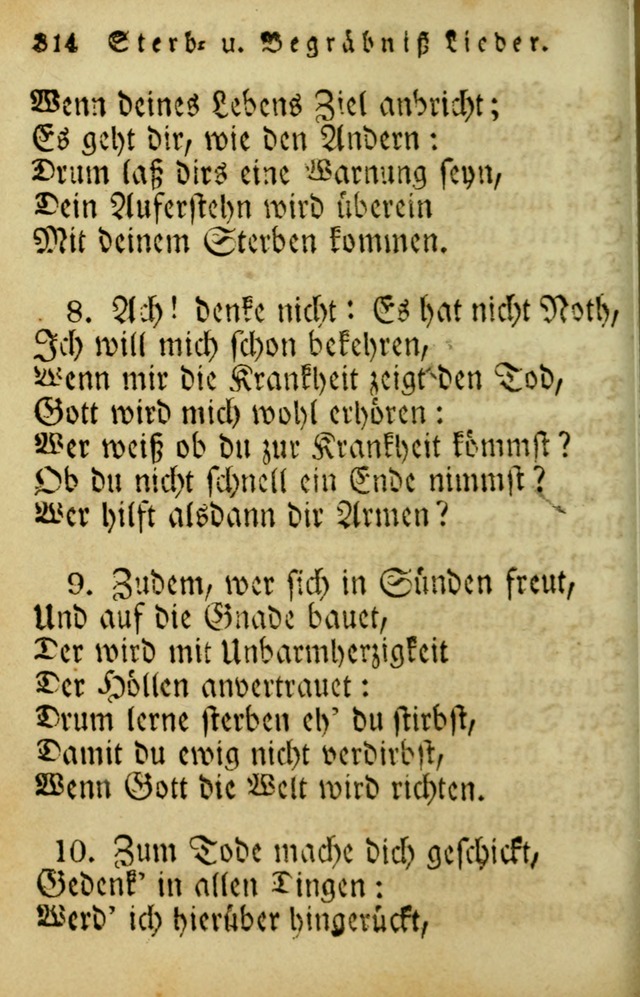 314 Sterb- u. Begräbniß Lieder.
Wenn deines Lebens Ziel anbricht;
Es geht dir, wie den Andern:
Drum laß dirs eine Warnung seyn,
Dein Auferstehn wird überein
Mit deinem Sterben kommen.
8. Ach! denke nicht: Es hat nicht Noth,
Ich will mich schon bekehren,
Wenn mir die Krankheit zeigt den Tod,
Gott wird mich wohl erhören:
Wer weiß ob du zur Krankheit kömmst?
Ob du nicht schnell ein Ende nimmst?
Wer hilft alsdann dir Armen?
9. Zudem, wer sich in Sünden freut,
Und auf die Gnade bauet,
Der wird mit Unbarmherzigkeit
Der Höllen anvertrauet:
Drum lerne sterben eh' du stirbst,
Damit du ewig nicht verdirbst,
Wenn Gott die Welt wird richten.
10. Zum Tode mache dich geschickt,
Gedenk' in allen Dingen:
Werd' ich hierüber hingerückt,